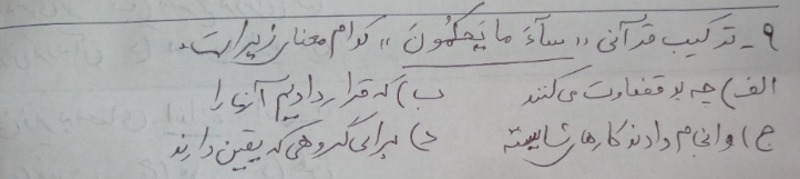 ۹- ترکیب قرآنی «سآءَ ما یَحکُمُونَ» کدام معنای زیر است.
الف) چه بد قضاوت می‌کنند ب) که قرار دادیم آنها را
ج) و انجام دادند کارهای شایسته د) برای گروهی که یقین دارند